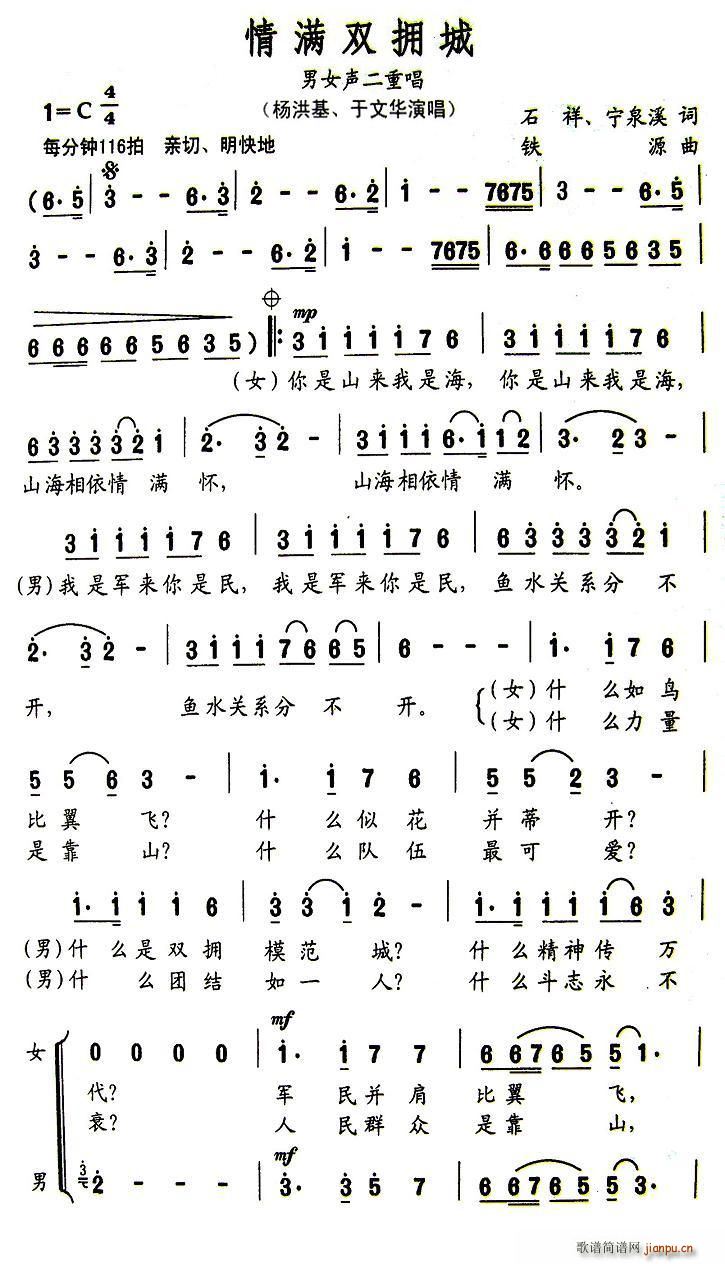 情满双拥城
男女声二重唱
(杨洪基、于文华演唱)
1=C 4/4
石 祥、宁泉溪 词
每分钟116拍 亲切、明快地
铁 源 曲
(6·5 | 3 - - 6·3 | 2 - - 6·2 | 1 - - 7675 | 3 - - 6·5 |
3 - - 6·3 | 2 - - 6·2 | 1 - - 7675 | 6·6 6 6 5 6 3 5 |
mp
6 6 6 6 6 5 6 3 5) ‖: 3 1 1 1 1 7 6 | 3 1 1 1 1 7 6 |
(女)你是山来我是海, 你是山来我是海,
6 3 3 3 3 2 1 | 2· 3 2 - | 3 1 1 1 6·1 1 2 | 3· 2 3 - |
山海相依情 满 怀, 山海相依情 满 怀。
3 1 1 1 1 7 6 | 3 1 1 1 1 7 6 | 6 3 3 3 3 2 1 |
(男)我是军来你是民, 我是军来你是民, 鱼水关系分 不
2· 3 2 - | 3 1 1 1 7 6 6 5 | 6 - - - | 1· 1 7 6 |
开, 鱼水关系分 不 开。 (女)什 么如鸟
(女)什 么力量
5 5 6 3 - | 1· 1 7 6 | 5 5 2 3 - |
比翼 飞? 什 么似花 并蒂 开?
是靠 山? 什 么队伍 最可 爱?
1· 1 1 1 6 | 3 3 1 2 - | 1· 1 1 1 6 3 |
(男)什 么是双拥 模范 城? 什 么精神传 万
(男)什 么团结 如一 人? 什 么斗志永 不
mf
女 0 0 0 0 | 1· 1 7 7 | 6 6 7 6 5 5 1· |
代? 军 民并肩 比翼 飞,
衰? 人 民群众 是靠 山,
mf
男 3 2 - - - | 3· 3 5 5 | 6 6 7 6 5 5 3· |
歌谱简谱网 jianpu.cn